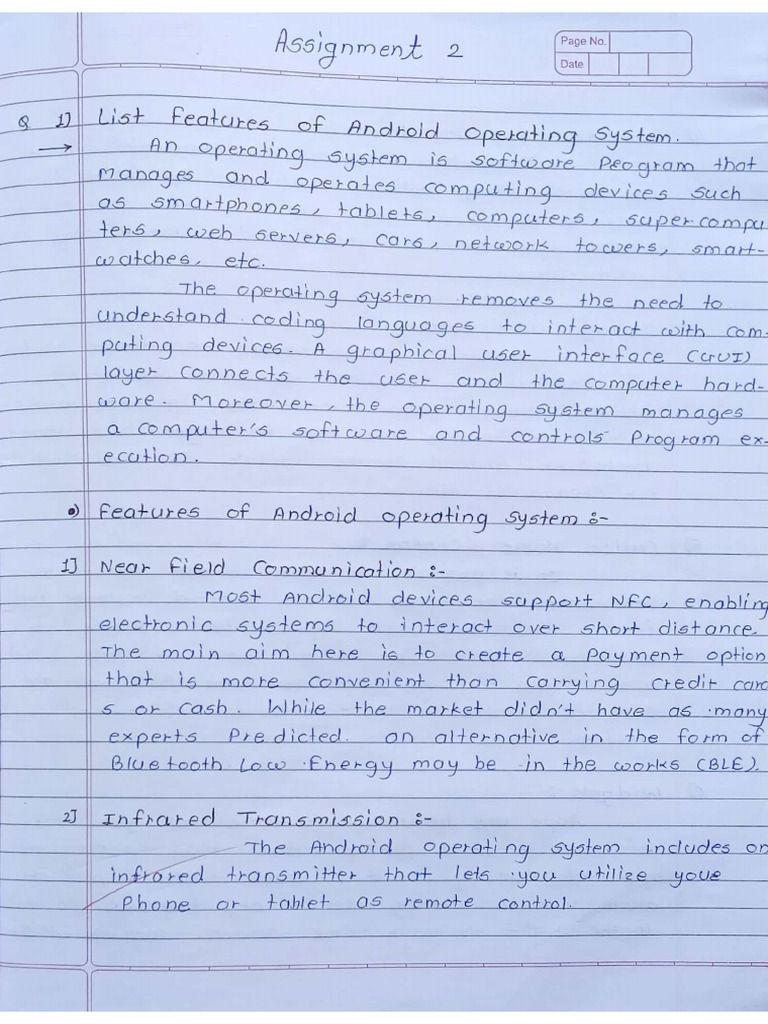 Assignment 2
Page No.
Date
Q 1] List Features of Android Operating System.
→ An operating system is software Program that
manages and operates computing devices such
as smartphones, tablets, computers, supercompu
ters, web servers, cars, network towers, smart-
watches, etc.
The operating system removes the need to
understand coding languages to interact with com-
puting devices. A graphical user interface (GUI)
layer connects the user and the computer hard-
ware. Moreover, the operating system manages
a computer's software and controls Program ex-
ecution.
•) Features of Android operating system :-
1] Near Field Communication :-
Most Android devices support NFC, enabling
electronic systems to interact over short distance.
The main aim here is to create a payment option
that is more convenient than carrying credit card
s or cash. While the market didn't have as many
experts Predicted. an alternative in the form of
Bluetooth Low Energy may be in the works (BLE).
2] Infrared Transmission :-
The Android operating system includes an
infrared transmitter that lets you utilize your
Phone or tablet as remote control.